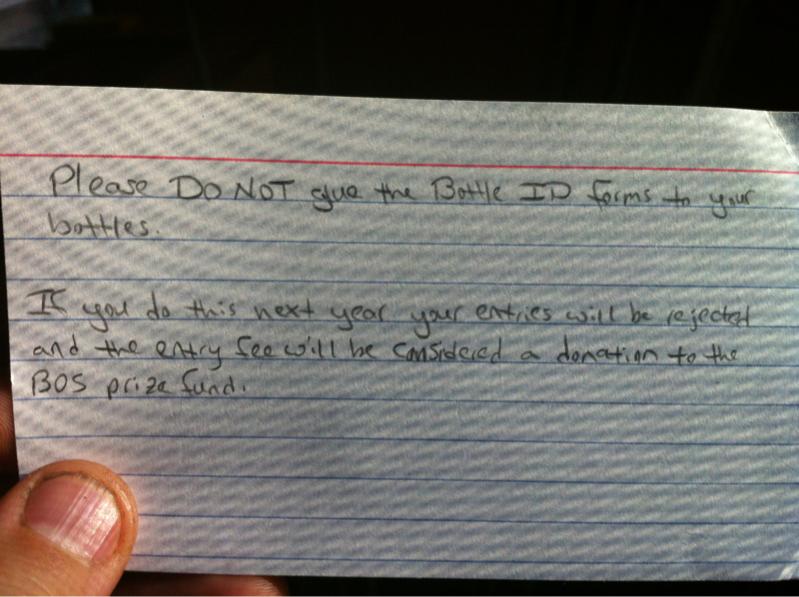 Please DO NOT glue the Bottle ID forms to your
bottles.
If you do this next year your entries will be rejected
and the entry fee will be considered a donation to the
BOS prize fund.